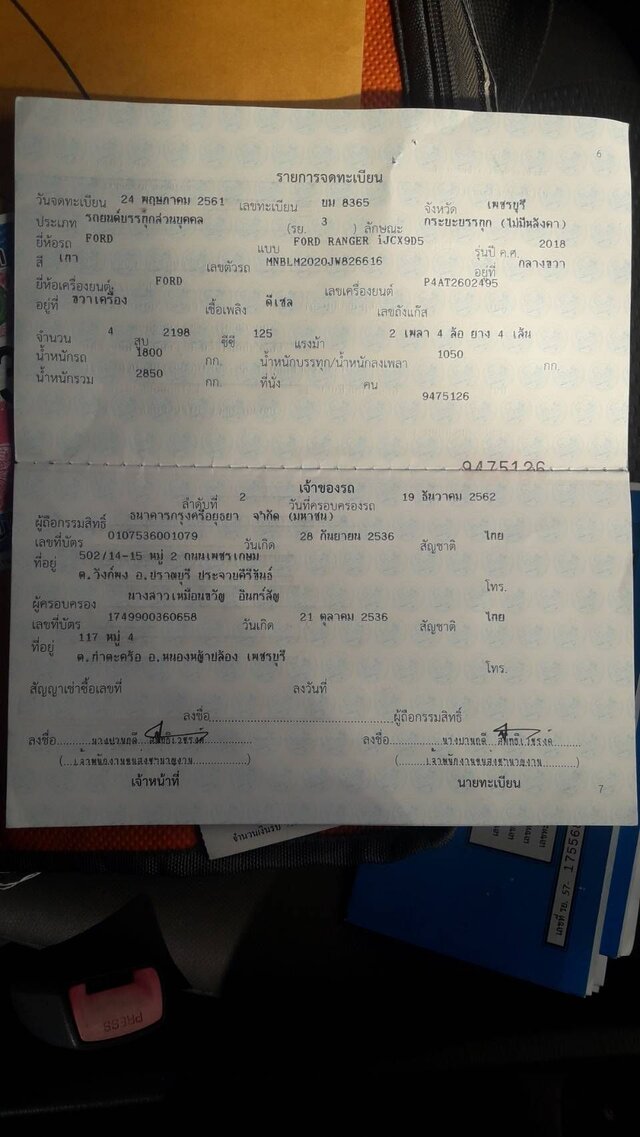 6
รายการจดทะเบียน
วันจดทะเบียน 24 พฤษภาคม 2561 เลขทะเบียน ยม 8365 จังหวัด เพชรบุรี
ประเภท รถยนต์บรรทุกส่วนบุคคล (รย. 3 ) ลักษณะ กระบะบรรทุก (ไม่มีหลังคา)
ยี่ห้อรถ FORD แบบ FORD RANGER iJCX9D5 รุ่นปี ค.ศ. 2018
สี เทา เลขตัวรถ MNBLM2020JW826616 อยู่ที่ กลางขวา
ยี่ห้อเครื่องยนต์ FORD เลขเครื่องยนต์ P4AT2602495
อยู่ที่ ขวาเครื่อง เชื้อเพลิง ดีเซล เลขถังแก๊ส
จำนวน 4 สูบ 2198 ซีซี 125 แรงม้า 2 เพลา 4 ล้อ ยาง 4 เส้น
น้ำหนักรถ 1800 กก. น้ำหนักบรรทุก/น้ำหนักลงเพลา 1050 กก.
น้ำหนักรวม 2850 กก. ที่นั่ง คน
9475126
9475126
เจ้าของรถ
ลำดับที่ 2 วันที่ครอบครองรถ 19 ธันวาคม 2562
ผู้ถือกรรมสิทธิ์ ธนาคารกรุงศรีอยุธยา จำกัด (มหาชน)
เลขที่บัตร 0107536001079 วันเกิด 28 กันยายน 2536 สัญชาติ ไทย
ที่อยู่ 502/14-15 หมู่ 2 ถนนเพชรเกษม
ต.วังก์พง อ.ปราณบุรี ประจวบคีรีขันธ์ โทร.
ผู้ครอบครอง นางสาวเหมือนขวัญ อินทร์สัญ
เลขที่บัตร 1749900360658 วันเกิด 21 ตุลาคม 2536 สัญชาติ ไทย
ที่อยู่ 117 หมู่ 4
ต.ท่าตะคร้อ อ.หนองหญ้าปล้อง เพชรบุรี โทร.
สัญญาเช่าซื้อเลขที่ ลงวันที่
ลงชื่อ ผู้ถือกรรมสิทธิ์
ลงชื่อ ลงชื่อ
(เจ้าพนักงานขนส่งชำนาญงาน) (เจ้าพนักงานขนส่งชำนาญงาน)
เจ้าหน้าที่ นายทะเบียน
7
จำนวนเงินรับ
เลขที่ รย. 57-
PRESS